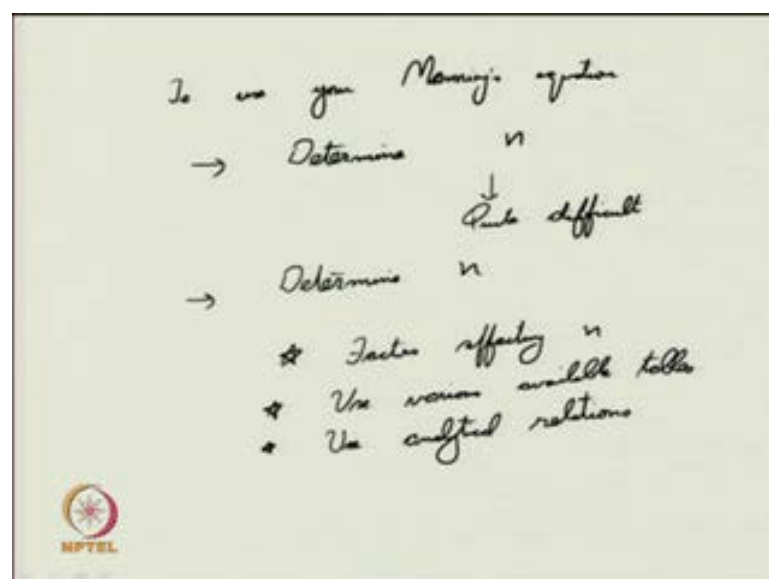 To use your Manning's equation
→ Determine n
↓
Quite difficult
→ Determine n
☆ Factors affecting n
☆ Use various available tables
☆ Use analytical relations
NPTEL